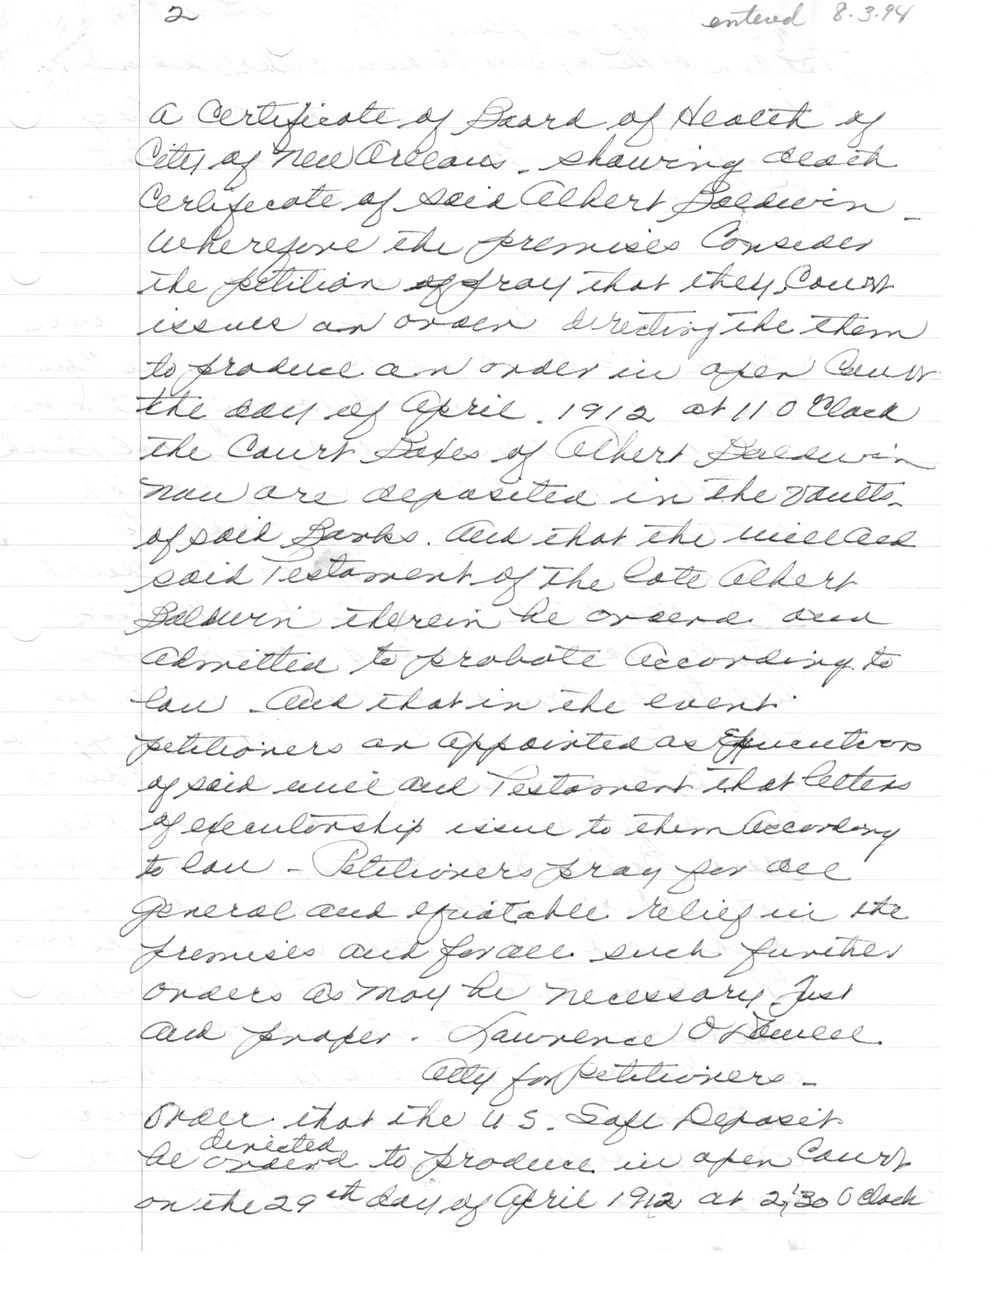 2
entered 8.3.94
A Certificate of Board of Health of
City of New Orleans - showing death
Certificate of said Albert Baldwin -
Wherefore the premises Consider
the petition pray that they Court
issues an order directing the them
to produce an order in open Court
the day of April. 1912 at 11 O Clock
the Court Boxes of Albert Baldwin
now are deposited in the vaults
of said Banks. And that the will and
said Testament of the late Albert
Baldwin therein be ordered and
Admitted to probate According to
law - And that in the event
petitioners an appointed as Executors
of said will and Testament that letters
of executorship issue to them According
to law - Petitioners pray for all
general and equitable relief in the
premises and for all such further
orders as may be necessary Just
and proper. Lawrence
Atty for Petitioners -
Order that the U S. Safe Deposit
directed
be ordered to produce in open Court
on the 29th day of April 1912 at 2:30 O Clock